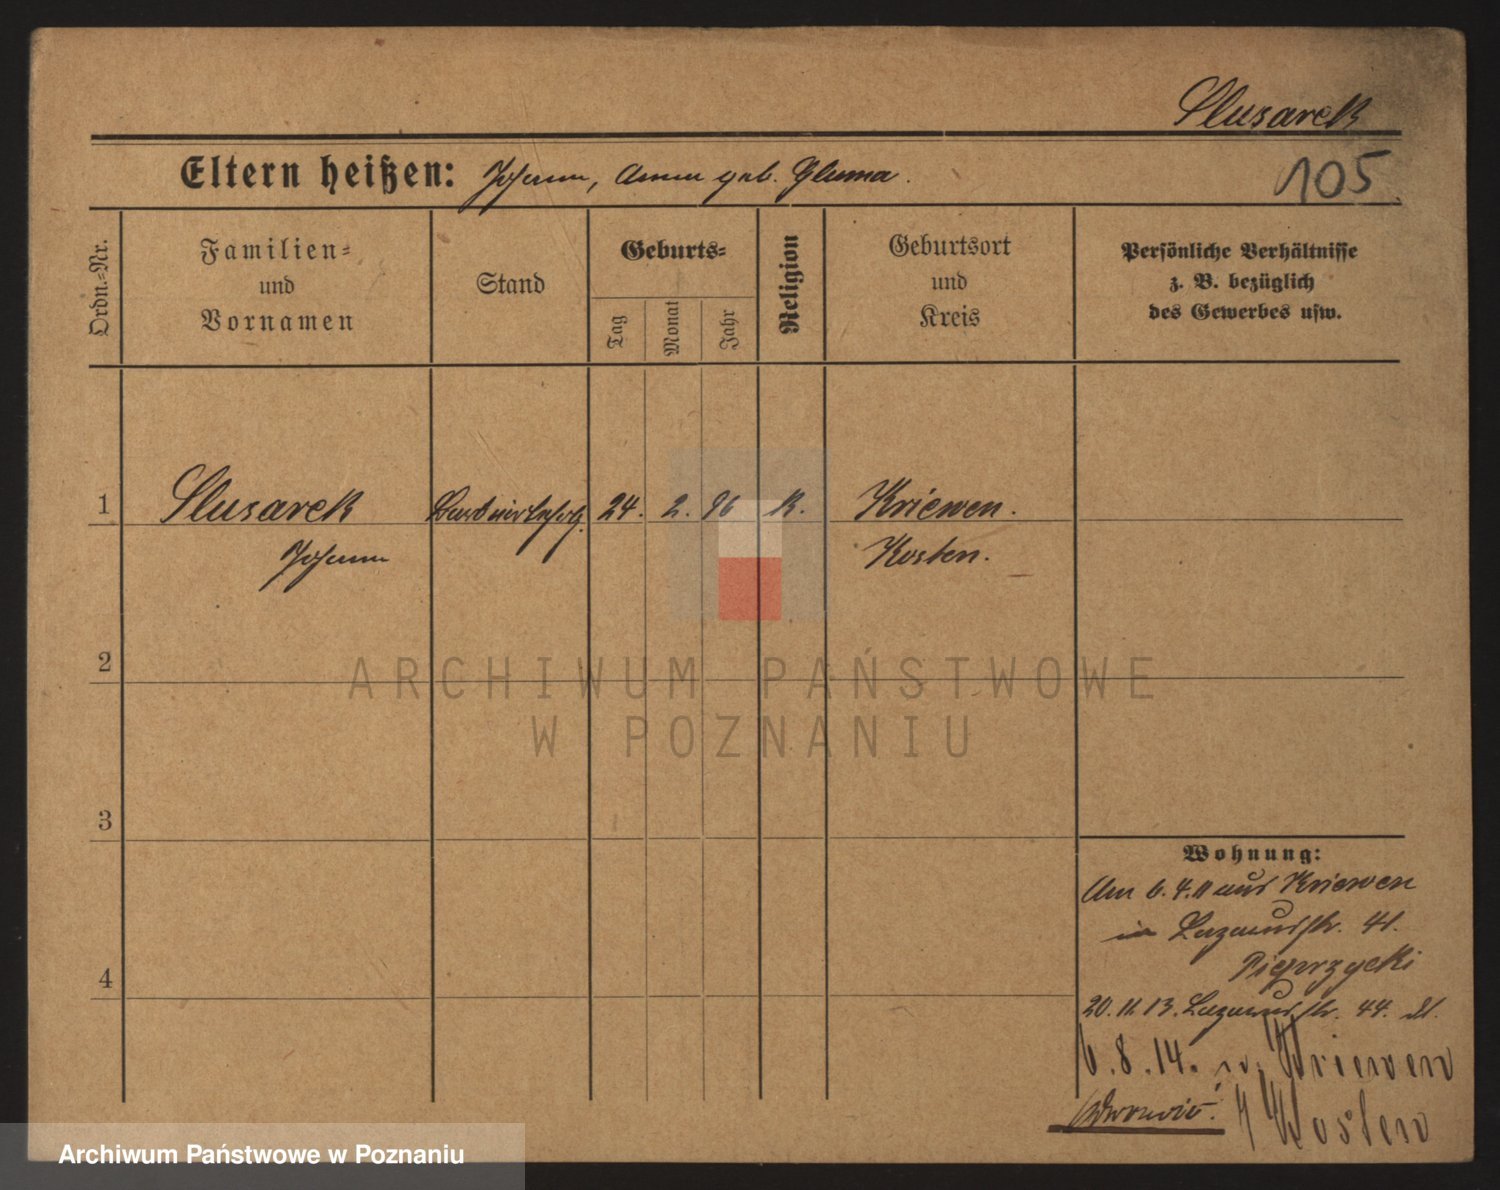 Slusarek
Eltern heißen: Johann, Anna geb. Gluma.
105
Ordn.-Nr.
Familien-
und
Vornamen
Stand
Geburts-
Tag
Monat
Jahr
Religion
Geburtsort
und
Kreis
Persönliche Verhältnisse
z. B. bezüglich
des Gewerbes usw.
1
Slusarek 24. 2. 96 K. Kriewen.
Johann Kosten.
2
ARCHIWUM PAŃSTWOWE
W POZNANIU
3
Wohnung:
Am 6.4.11 aus Kriewen
in Lazarusstr. 41.
4
20.11.13. Lazarusstr. 44.
6.8.14. n. Kriewen
Kosten
Archiwum Państwowe w Poznaniu